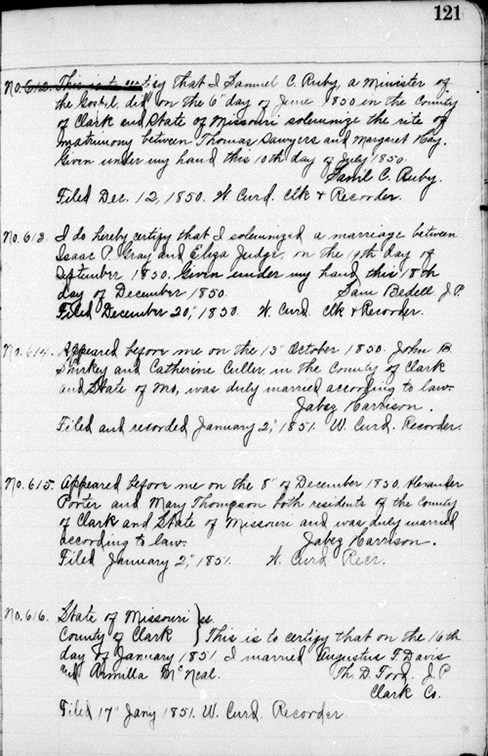 121
No. 612. This is to certify that I Samuel C. Ruby, a Minister of
the Gospel did on the 6" day of June 1850 in the County
of Clark and State of Missouri solemnize the rite of
matrimony between Thomas Sawyers and Margaret Hay.
Given under my hand this 10th day of July 1850.
Saml C. Ruby.
Filed Dec. 12, 1850. W Curd. Clk & Recorder.
No. 613. I do hereby certify that I solemnized a marriage between
Isaac P. Gray and Eliza Judge, on the 19th day of
September 1850. Given under my hand this 18th
day of December 1850. Sam Bedell J.P.
Filed December 20," 1850. W. Curd Clk & Recorder.
No. 614. Appeared before me on the 13" October 1850. John B.
Shirkey and Catherine Culler in the County of Clark
and State of Mo, was duly married according to law.
Jabez Harrison.
Filed and recorded January 2," 1851. W. Curd. Recorder.
No. 615. Appeared before me on the 8" of December 1850. Alexander
Porter and Mary Thompson both residents of the County
of Clark and State of Missouri and was duly married
according to law. Jabez Harrison.
Filed January 2," 1851. W. Curd Recr.
No. 616. State of Missouri } ss.
County of Clark } This is to certify that on the 16th
day of January 1851 I married Augustus T. Davis
and Armilla McNeal. Th. D. Ford. J.P.
Clark Co.
Filed 17" Jany 1851. W. Curd. Recorder